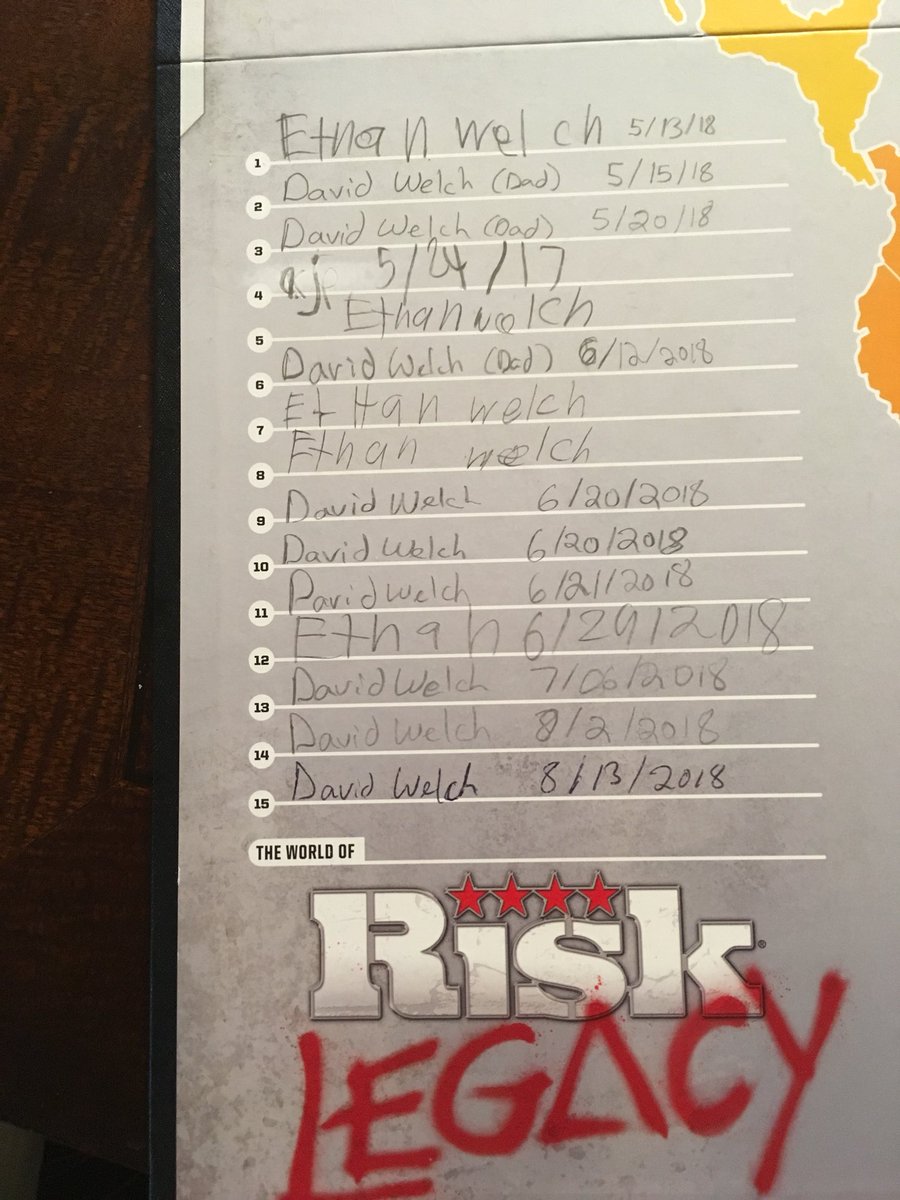 Ethan welch 5/13/18
1
David Welch (Dad) 5/15/18
2
David Welch (Dad) 5/20/18
3
5/24/17
4
Ethan welch
5
David Welch (Dad) 6/12/2018
6
EtHan welch
7
Ethan welch
8
David Welch 6/20/2018
9
David Welch 6/20/2018
10
David Welch 6/21/2018
11
Ethan 6/29/2018
12
David Welch 7/06/2018
13
David Welch 8/2/2018
14
David Welch 8/13/2018
15
THE WORLD OF
RISK®
LEGACY